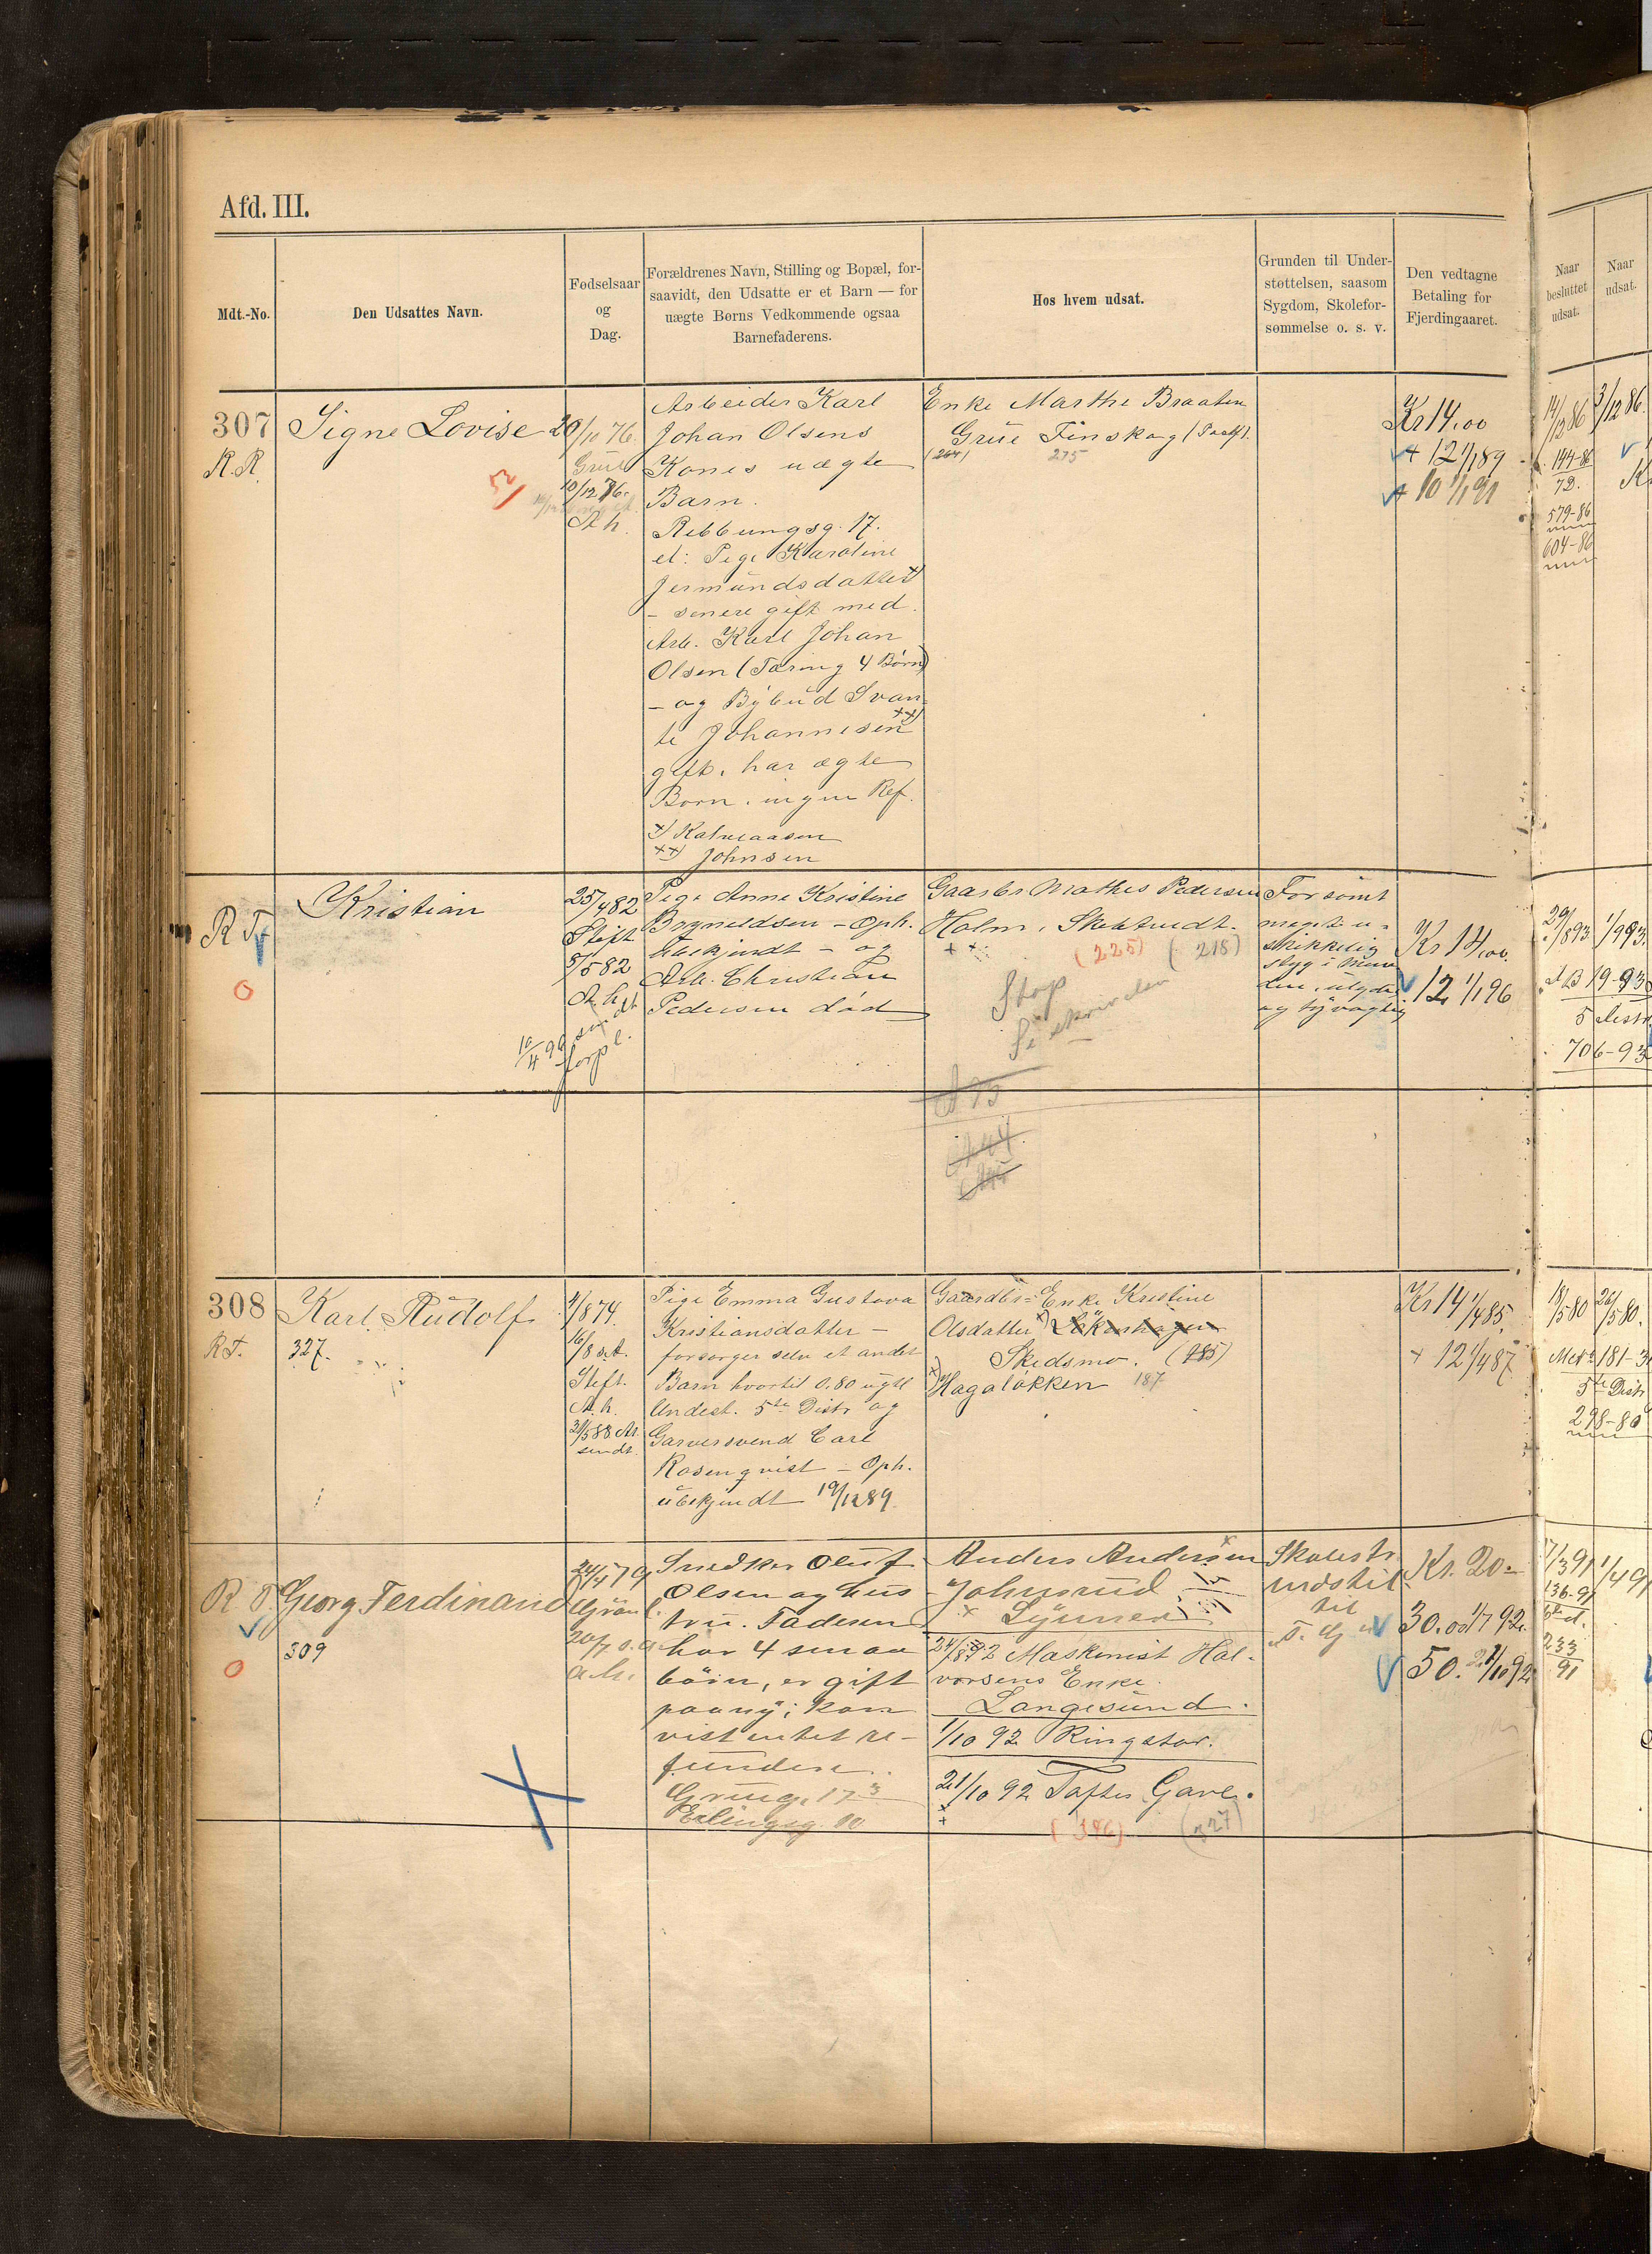 Afd. III.
Mdt.-No.
Den Udsattes Navn.
Fødselsaar
og
Dag.
Forældrenes Navn, Stilling og Bopæl, for-
saavidt, den Udsatte er et Barn — for
uægte Børns Vedkommende ogsaa
Barnefaderens.
Hos hvem udsat.
Grunden til Under-
støttelsen, saasom
Sygdom, Skolefor-
sømmelse o. s. v.
Den vedtagne
Betaling for
Fjerdingaaret.
Naar
besluttet
udsat.
Naar
udsat.
307
R.R.
Signe Lovise
20/10 76.
Grue
10/12 76.
A.h.
Arbeider Karl
Johan Olsens
Kones uægte
Barn.
Ribbungsg. 17.
el: Pige Karoline
Jermundsdatter x)
- senere gift med
Arb. Karl Johan
Olsen (Tæring 4 Børn)
- og Bybud Svan-
te Johannesen xx)
gift, har ægte
Børn. ingen Ref.
x) Kalneaasen
xx) Johnsen
Enke Marthe Braaten
Grue Finskog
(264)
275
Kr 14.00
+ 12 1/1 89
+ 10 1/1 91
14/12 86
3/12 86.
144-86
72.
579-86
604-86
R F.
Kristian
25/4 82
Stift
8/5 82
A. h.
10/4 96
forpl.
Pige Anne Kristine
Bryneldsen - Oph.
ubekjendt - og
Arb. Christian
Pedersen død
Gaardbr Mathis Pedersen
Holm,
(225) (218)
Stop
Se skrivelen
Forsømt
meget u-
skikkelig
styg i Mun-
den, ulydig
og tyvagtig
Kr 14,00.
12 1/1 96
29/8 93
1/9 93.
AB 19-93
5 Distr
706-93
308
R F.
Karl Rudolf
327.
4/8 74.
16/8 s.A.
Stift.
A.h.
31/5 88 At.
sendt.
Pige Emma Gustava
Kristiansdatter -
forsørger selv et andet
Barn hvortil 0.80 ugtl
Underst. 5te Distr og
Garversvend Carl
Rosenqvist - Oph.
ubekjendt 19/12 89.
Gaardbr= Enke Kristine
Olsdatter x) Løkenhagen
Skedsmo. (185)
x) Hagaløkken 187
Kr 14 1/4 85.
+ 12 1/4 87
18/5 80
26/5 80.
181-3
5te Distr
298-80
R F.
Georg Ferdinand
309
24/4 79
Grönl.
20/7 s.a.
a.h.
Snedker Oluf
Olsen og Hus
tru. Faderen
har 4 smaa
börn, er gift
paany; kan
vist intet re-
fundere.
Grüng. 17 3
Erlingsg. 10
Anders Andersen x
Johnsrud
x Lynner
24/8 92 Maskinist Hal-
vorsens Enke
Langesund.
1/10 92 Ringstør.
21/10 92 Toftes Gave.
(346) (327)
Skolestr
indstil
til
"T. G."
Kr. 20-
30.00 1/7 92.
50. 21/10 92
7/3 91
1/4 91
136-91
6te d.
233
91